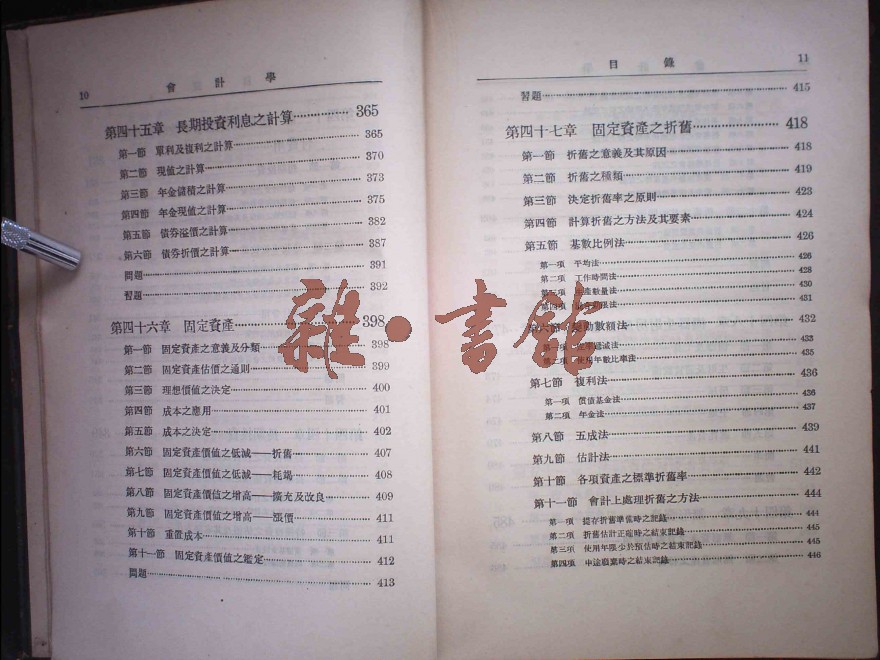 10 會計學
第四十五章 長期投資利息之計算 365
第一節 單利及複利之計算 365
第二節 現值之計算 370
第三節 年金儲積之計算 373
第四節 年金現值之計算 375
第五節 債券溢價之計算 382
第六節 債券折價之計算 387
問題 391
習題 392
第四十六章 固定資產 398
第一節 固定資產之意義及分類 398
第二節 固定資產估價之通則 399
第三節 理想價值之決定 400
第四節 成本之應用 401
第五節 成本之決定 402
第六節 固定資產價值之低減——折舊 407
第七節 固定資產價值之低減——耗竭 408
第八節 固定資產價值之增高——擴充及改良 409
第九節 固定資產價值之增高——漲價 411
第十節 重置成本 411
第十一節 固定資產價值之鑑定 412
問題 413
目錄 11
習題 415
第四十七章 固定資產之折舊 418
第一節 折舊之意義及其原因 418
第二節 折舊之種類 419
第三節 決定折舊率之原則 423
第四節 計算折舊之方法及其要素 424
第五節 基數比例法 426
第一項 平均法 426
第二項 工作時間法 428
第三項 生產數量法 430
第四項 431
第六節 變動數額法 432
第一項 遞減法 433
第二項 使用年數比率法 435
第七節 複利法 436
第一項 償債基金法 436
第二項 年金法 437
第八節 五成法 439
第九節 估計法 441
第十節 各項資產之標準折舊率 442
第十一節 會計上處理折舊之方法 444
第一項 提存折舊準備時之記錄 444
第二項 折舊估計正確時之結束記錄 445
第三項 使用年限少於預估時之結束記錄 445
第四項 中途廢棄時之結束記錄 446
雜·書館